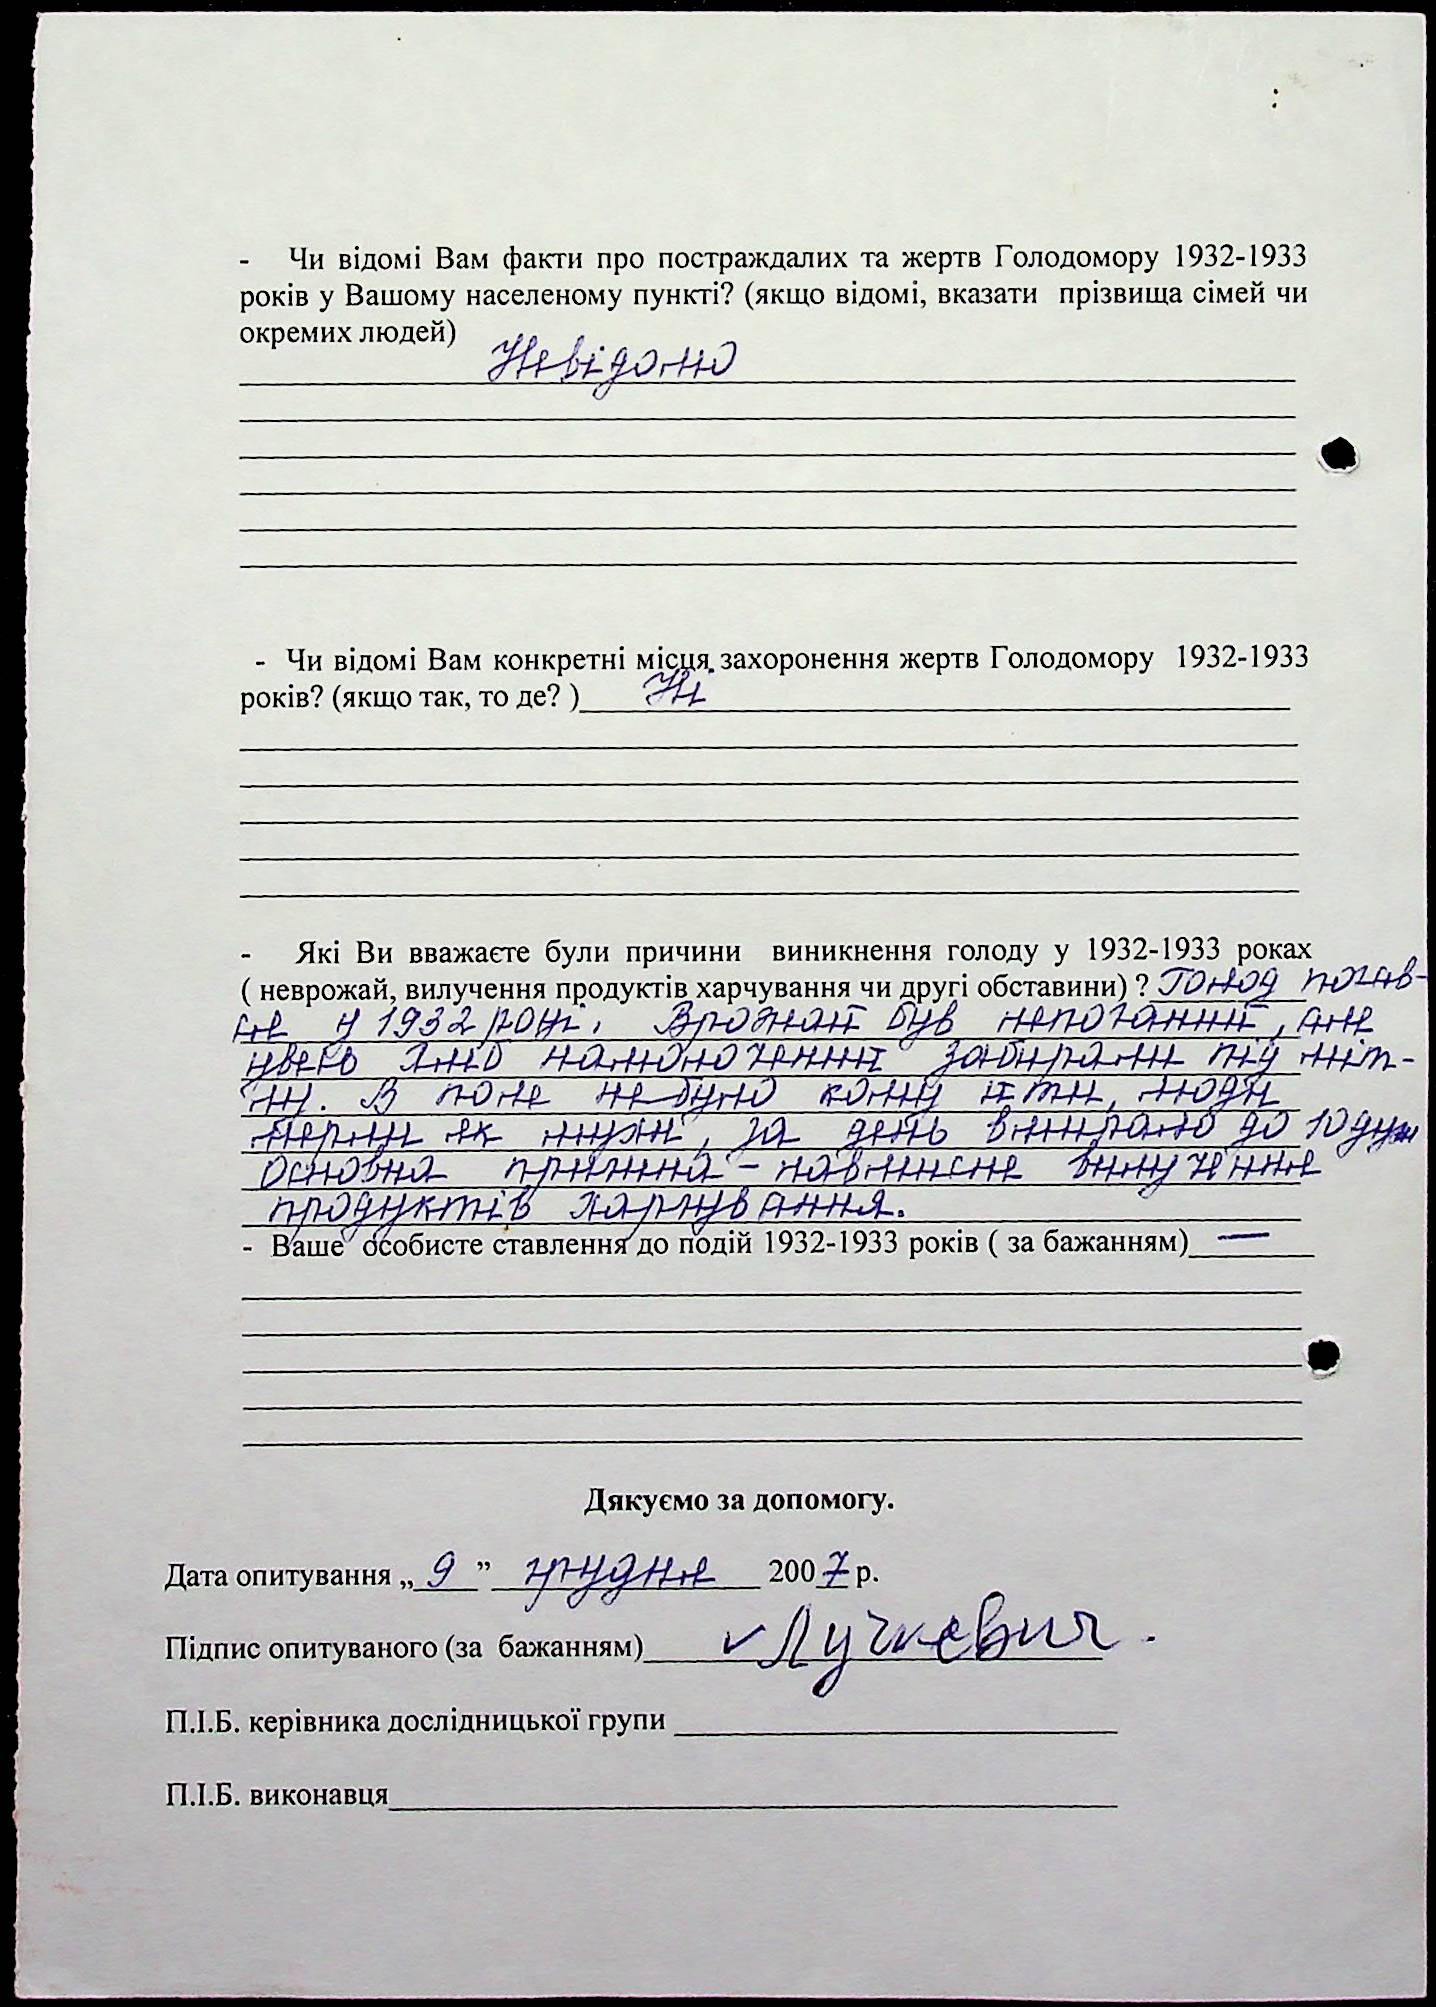 - Чи відомі Вам факти про постраждалих та жертв Голодомору 1932-1933
років у Вашому населеному пункті? (якщо відомі, вказати прізвища сімей чи
окремих людей)
Невідомо
- Чи відомі Вам конкретні місця захоронення жертв Голодомору 1932-1933
років? (якщо так, то де? ) Ні
- Які Ви вважаєте були причини виникнення голоду у 1932-1933 роках
( неврожай, вилучення продуктів харчування чи другі обставини) ? Голод почав-
ся у 1932 році. Врожай був непоганий, але
увесь хліб намолочений забирали під міт-
лу. В поле не було кому йти, люди
мерли як мухи, за день вмирало до 10 душ
Основна причина – навмисне вилучення
продуктів харчування.
- Ваше особисте ставлення до подій 1932-1933 років ( за бажанням) —
Дякуємо за допомогу.
Дата опитування „ 9 ” грудня 2007 р.
Підпис опитуваного (за бажанням) Лучкевич.
П.І.Б. керівника дослідницької групи
П.І.Б. виконавця